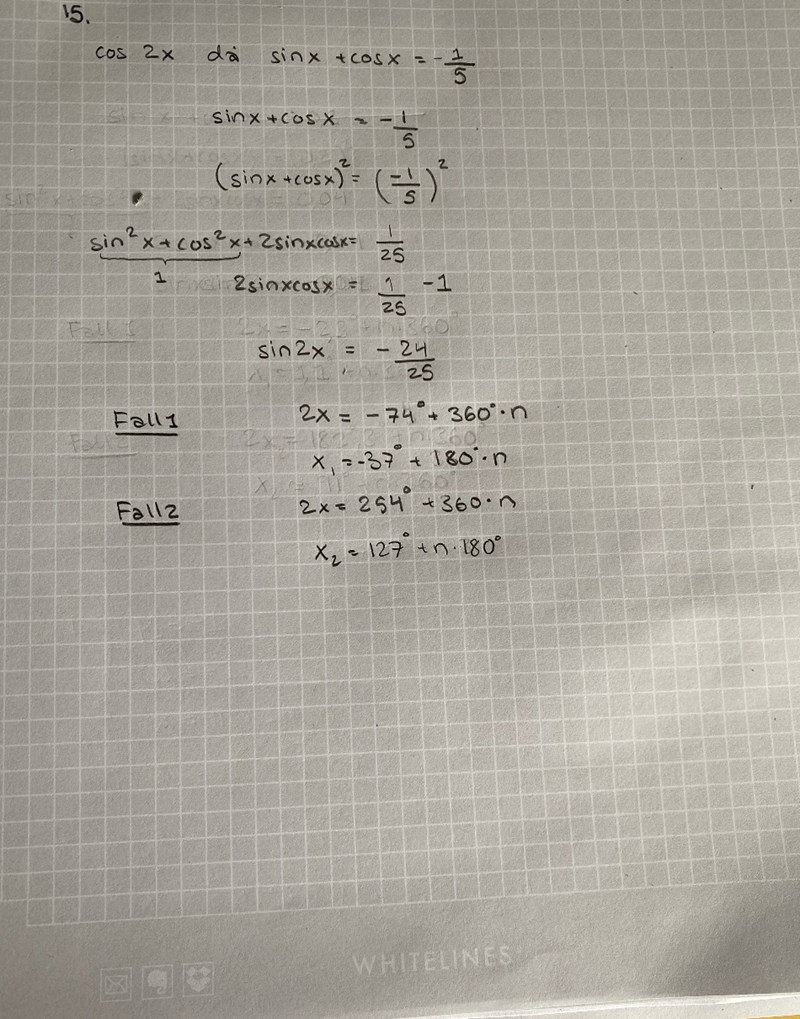 15.
cos 2x då sinx + cosx = -1/5
sinx + cosx = -1/5
(sinx + cosx)² = (-1/5)²
sin²x + cos²x + 2sinxcosx = 1/25
1
2sinxcosx = 1/25 - 1
sin2x = -24/25
Fall 1 2x = -74° + 360°·n
x₁ = -37° + 180°·n
Fall 2 2x = 254° + 360·n
x₂ = 127° + n·180°
WHITELINES